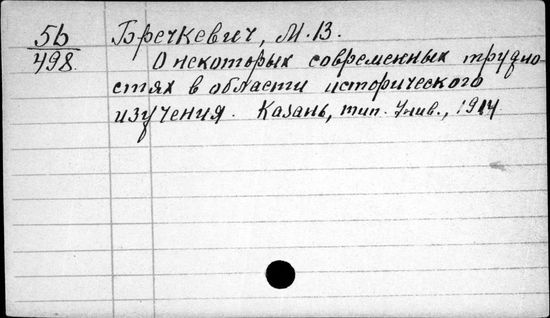 5b
498
Бречкевич, М. В.
О некоторых современных трудно-
стях в области исторического
изучения. Казань, тип. Унив., 1914